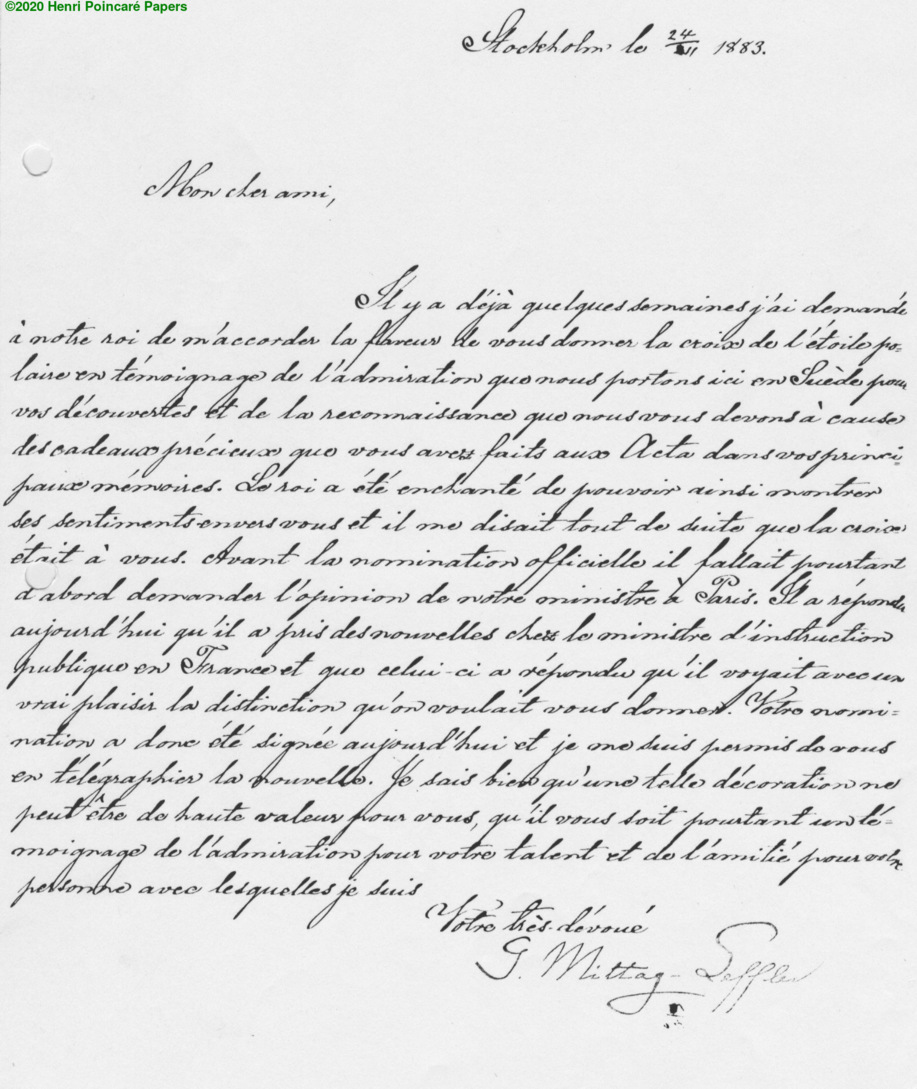 ©2020 Henri Poincaré Papers
Stockholm le 24/VII 1883.
Mon cher ami,
Il y a déjà quelques semaines j'ai demandé
à notre roi de m'accorder la faveur de vous donner la croix de l'étoile po=
laire en témoignage de l'admiration que nous portons ici en Suède pour
vos découvertes et de la reconnaissance que nous vous devons à cause
des cadeaux précieux que vous avez faits aux Acta dans vos princi=
paux mémoires. Le roi a été enchanté de pouvoir ainsi montrer
ses sentiments envers vous et il me disait tout de suite que la croix
était à vous. Avant la nomination officielle il fallait pourtant
d'abord demander l'opinion de notre ministre à Paris. Il a répondu
aujourd'hui qu'il a pris des nouvelles chez le ministre d'instruction
publique en France et que celui-ci a répondu qu'il voyait avec un
vrai plaisir la distinction qu'on voulait vous donner. Votre nomi=
nation a donc été signée aujourd'hui et je me suis permis de vous
en télégraphier la nouvelle. Je sais bien qu'une telle décoration ne
peut être de haute valeur pour vous, qu'il vous soit pourtant un té=
moignage de l'admiration pour votre talent et de l'amitié pour votre
personne avec lesquelles je suis
Votre très dévoué
G. Mittag-Leffler